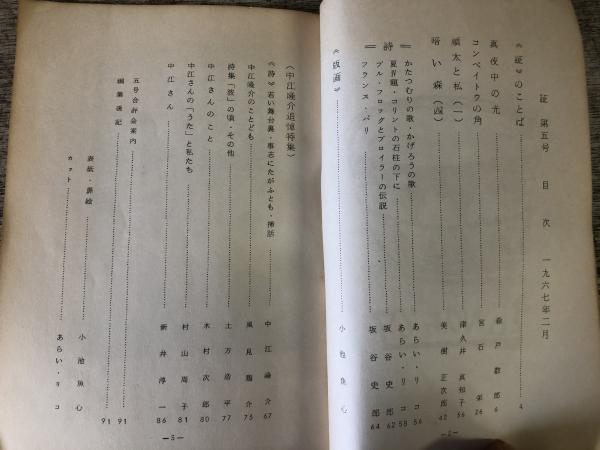 証 第五号 目次 一九六七年二月
《証》のことば 4
真夜中の光 数郎 6
コンペイトウの角 宮石 栄 24
禎太と私（一） 津久井 真知子 36
暗い森（四） 美樹 正次郎 42
＝詩＝
かたつむりの歌・かげろうの歌 あらい・リコ 56
夏昇題・コリントの石柱の下に あらい・リコ 58
ブル・フロッグとブロイラーの伝説 坂谷 史郎 62
フランス・パリ 坂谷 史郎 64
《版画》 小池 魚心
—2—
（中江隆介追悼特集）
《詩》若い舞台裏・事志にたがふとも・挿話 中江隆介 67
中江隆介のことども 風見 介 75
詩集「波」の頃・その他 土方 浩平 77
中江さんのこと 木村 次郎 80
中江さんの「うた」と私たち 村山 周子 81
中江さん 新井 淳一 86
五号合評会案内 91
編集後記 91
表紙・扉絵 小池 魚心
カット あらい・リコ
—3—